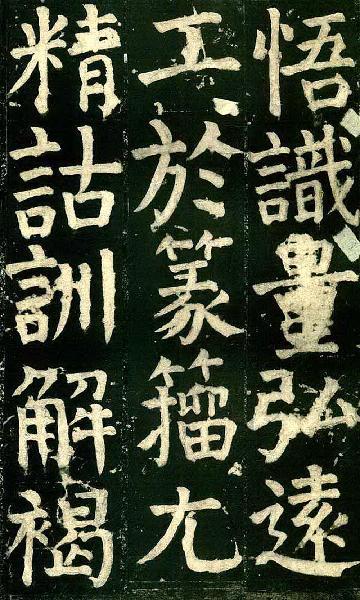 悟識量弘遠
工於篆籀尤
精詁訓解褐